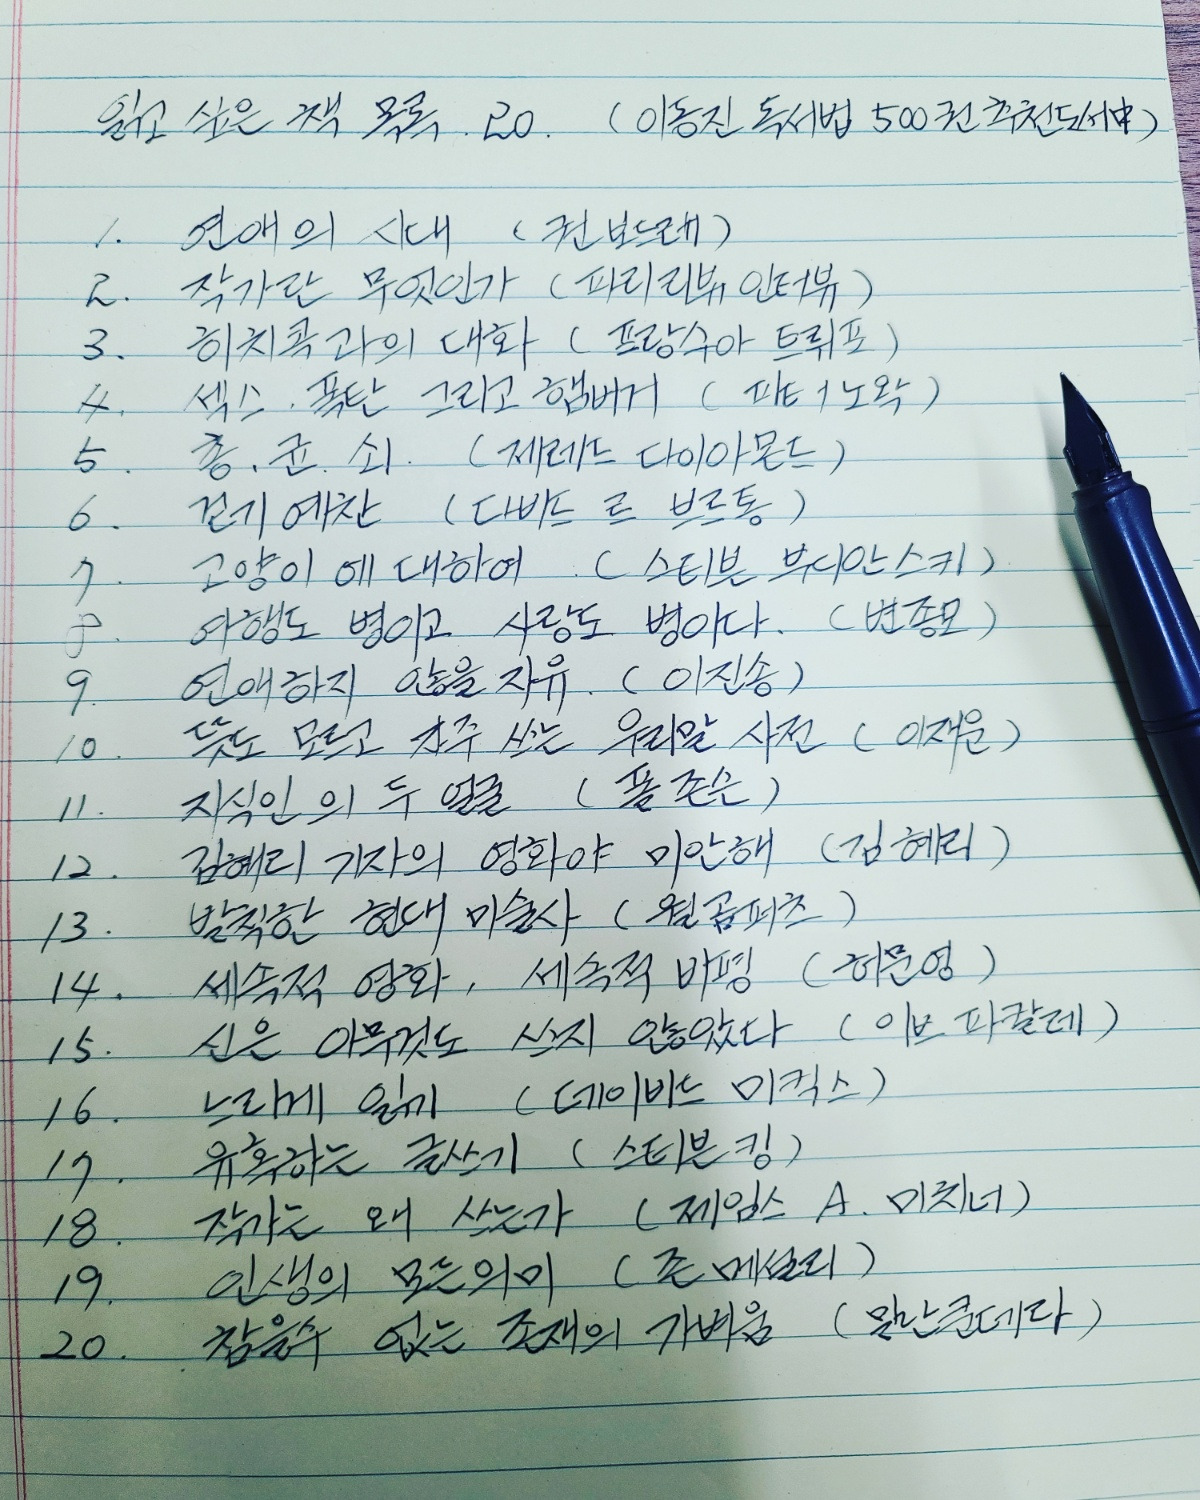 읽고 싶은 책 목록. 20. (이동진 독서법 500권 추천도서中)
1. 연애의 시대 (권보드래)
2. 작가란 무엇인가 (파리리뷰 인터뷰)
3. 히치콕과의 대화 (프랑수아 트뤼포)
4. 섹스. 폭탄 그리고 햄버거 (피터 노왁)
5. 총. 균. 쇠. (제레드 다이아몬드)
6. 걷기예찬 (다비드 르 브르통)
7. 고양이에 대하여. (스티븐 부디안스키)
8. 여행도 병이고 사랑도 병이다. (변종모)
9. 연애하지 않을 자유. (이진송)
10. 뜻도 모르고 자주 쓰는 우리말 사전 (이재운)
11. 지식인의 두 얼굴 (폴 존슨)
12. 김혜리 기자의 영화야 미안해 (김혜리)
13. 발칙한 현대 미술사 (윌 곰퍼츠)
14. 세속적 영화, 세속적 비평 (허문영)
15. 신은 아무것도 쓰지 않았다 (이브 파칼레)
16. 느리게 읽기 (데이비드 미킥스)
17. 유혹하는 글쓰기 (스티븐킹)
18. 작가는 왜 쓰는가 (제임스 A. 미치너)
19. 인생의 모든의미 (존 메설리)
20. 참을수 없는 존재의 가벼움 (밀란쿤데라)